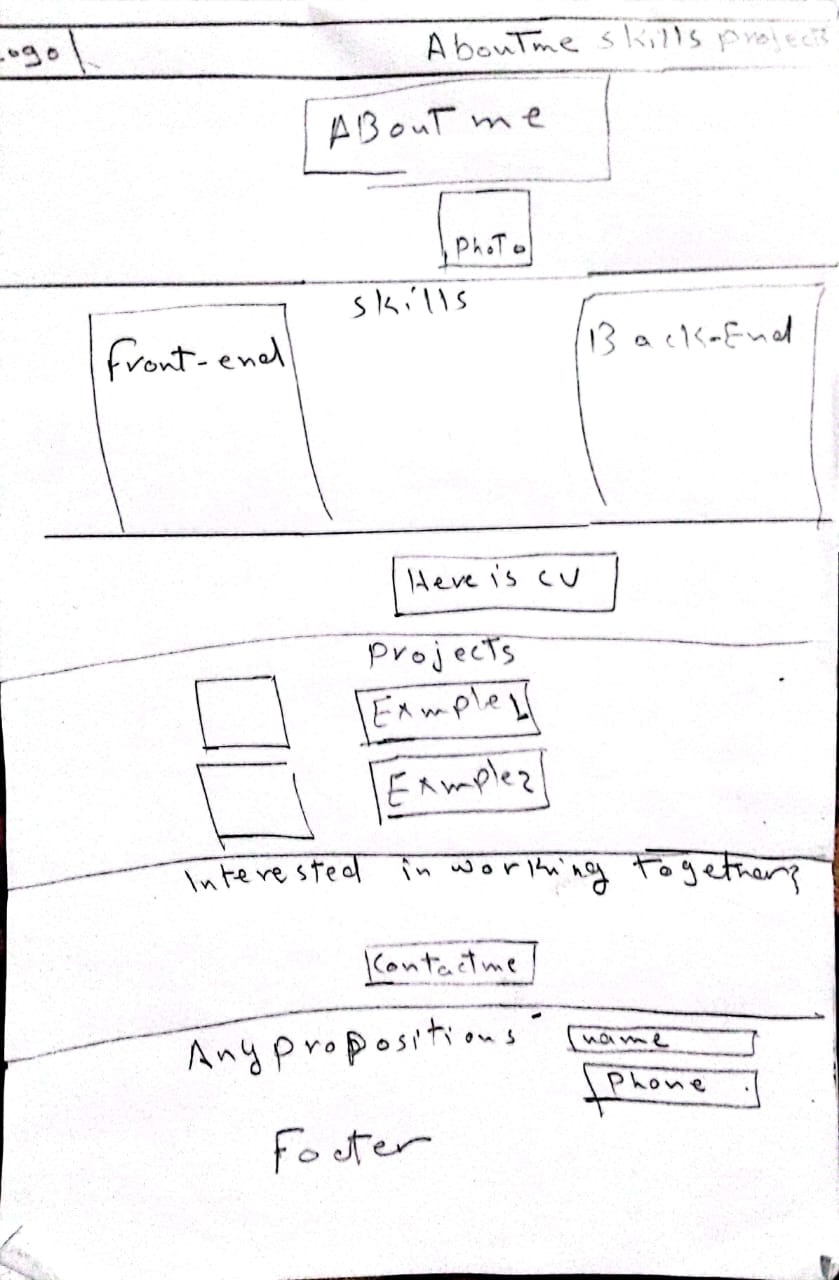 Logo
About me skills projects
About me
photo
skills
front-end
Back-End
Here is CV
projects
Example1
Example2
Interested in working together?
Contact me
Any propositions
name
phone
Footer